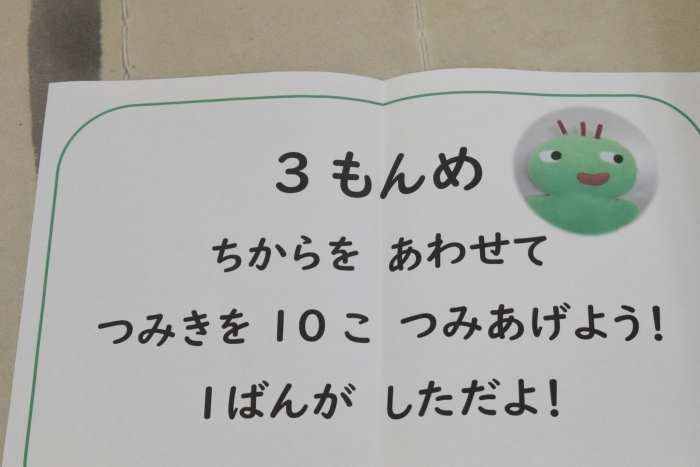 3もんめ
ちからを あわせて
つみきを 10こ つみあげよう!
1ばんが しただよ!